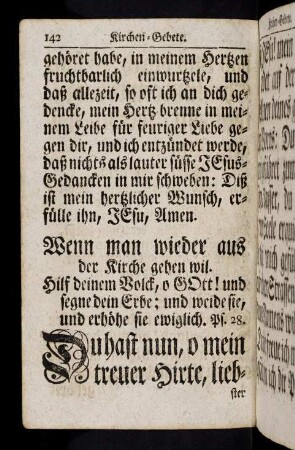 142 Kirchen-Gebete.
gehöret habe, in meinem Hertzen
fruchtbarlich einwurtzele, und
daß allezeit, so oft ich an dich ge-
dencke, mein Hertz brenne in mei-
nem Leibe für feuriger Liebe ge-
gen dir, und ich entzündet werde,
daß nichts als lauter süsse JEsus-
Gedancken in mir schweben: Diß
ist mein hertzlicher Wunsch, er-
fülle ihn, JEsu, Amen.
Wenn man wieder aus
der Kirche gehen wil.
Hilf deinem Volck, o GOtt! und
segne dein Erbe; und weide sie,
und erhöhe sie ewiglich. Ps. 28.
Du hast nun, o mein
treuer Hirte, lieb-
ster